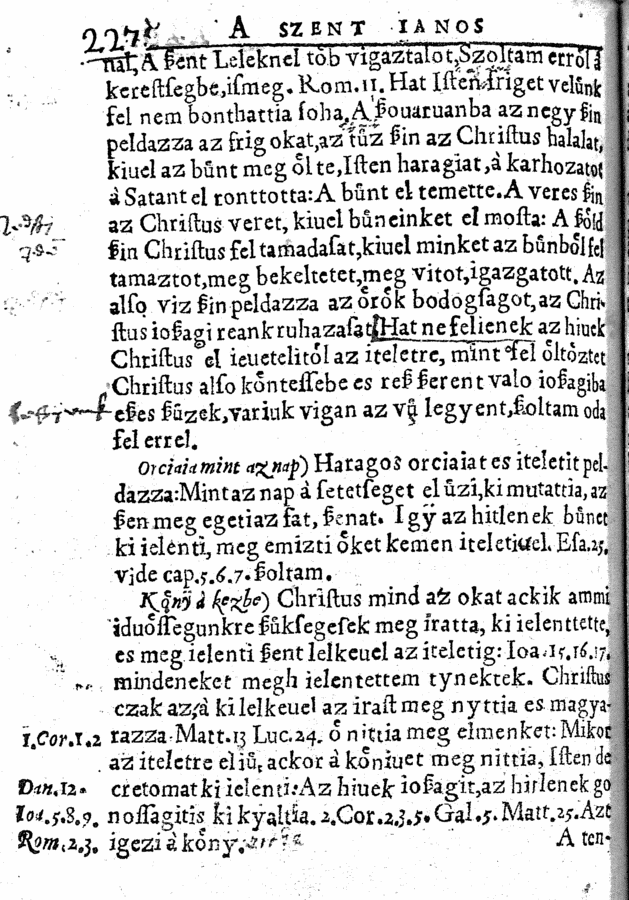 227
A SZENT IANOS
nal, A ßent Leleknel tob vigaztalot, Szoltam errol a
kerestsegbe, ismeg. Rom. 11. Hat Isten friget velůnk
fel nem bonthattia soha, A ßouaruanba az negy ßin
peldazza az frig okat, az tůz ßin az Christus halalat,
kiuel az bůnt meg oͤl te, Isten haragiat, à karhozatot
à Satant el ronttotta: A bůnt el temette. A veres ßin
az Christus veret, kiuel bůneinket el mosta: A ßoͤld
ßin Christus fel tamadasat, kiuel minket az bůnboͤl fel
tamaztot, meg bekeltetet, meg vitot, igazgatott. Az
also viz ßin peldazza az oͤroͤk bodogsagot, az Chri-
stus ioßagi reank ruhazasat. Hat ne felienek az hiuek
Christus el ieuetelitoͤl az iteletre, mint fel oͤltoͤztet
Christus also koͤntessebe es reß ßerent valo ioßagiba
eßes ßůzek, variuk vigan az vͦy legyent, ßoltam oda
fel errel.
Orciaia mint az nap) Haragos orciaiat es iteletit pel-
dazza: Mint az nap à setetseget el ůzi, ki mutattia, az
ßen meg egeti az fat, ßenat. Igÿ az hitlenek bůnet
ki ielenti, meg emizti oͤket kemen iteletiuel. Esa. 25.
vide cap. 5. 6. 7. ßoltam.
Koͤnÿ à kezbe) Christus mind az okat ackik ammi
iduoͤssegunkre ßůksegesek meg iratta, ki ielenttette,
es meg ielenti ßent lelkeuel az iteletig: Ioa. 15. 16. 17.
mindeneket megh ielentettem tynektek. Christus
czak az, à ki lelkeuel az irast meg nyttia es magya-
1. Cor. 1. 2 razza. Matt. 13 Luc. 24. oͤ nittia meg elmenket: Mikor
az iteletre el iů, ackor à koͤniuet meg nittia, Isten de
Dan. 12. cretomat ki ielenti: Az hiuek ioßagit, az hirlenek go
Ioa. 5. 8. 9. nossagitis ki kyaltia. 2. Cor. 2. 3. 5. Gal. 5. Matt. 25. Azt
Rom. 2. 3. igezi à koͤny.
A ten-